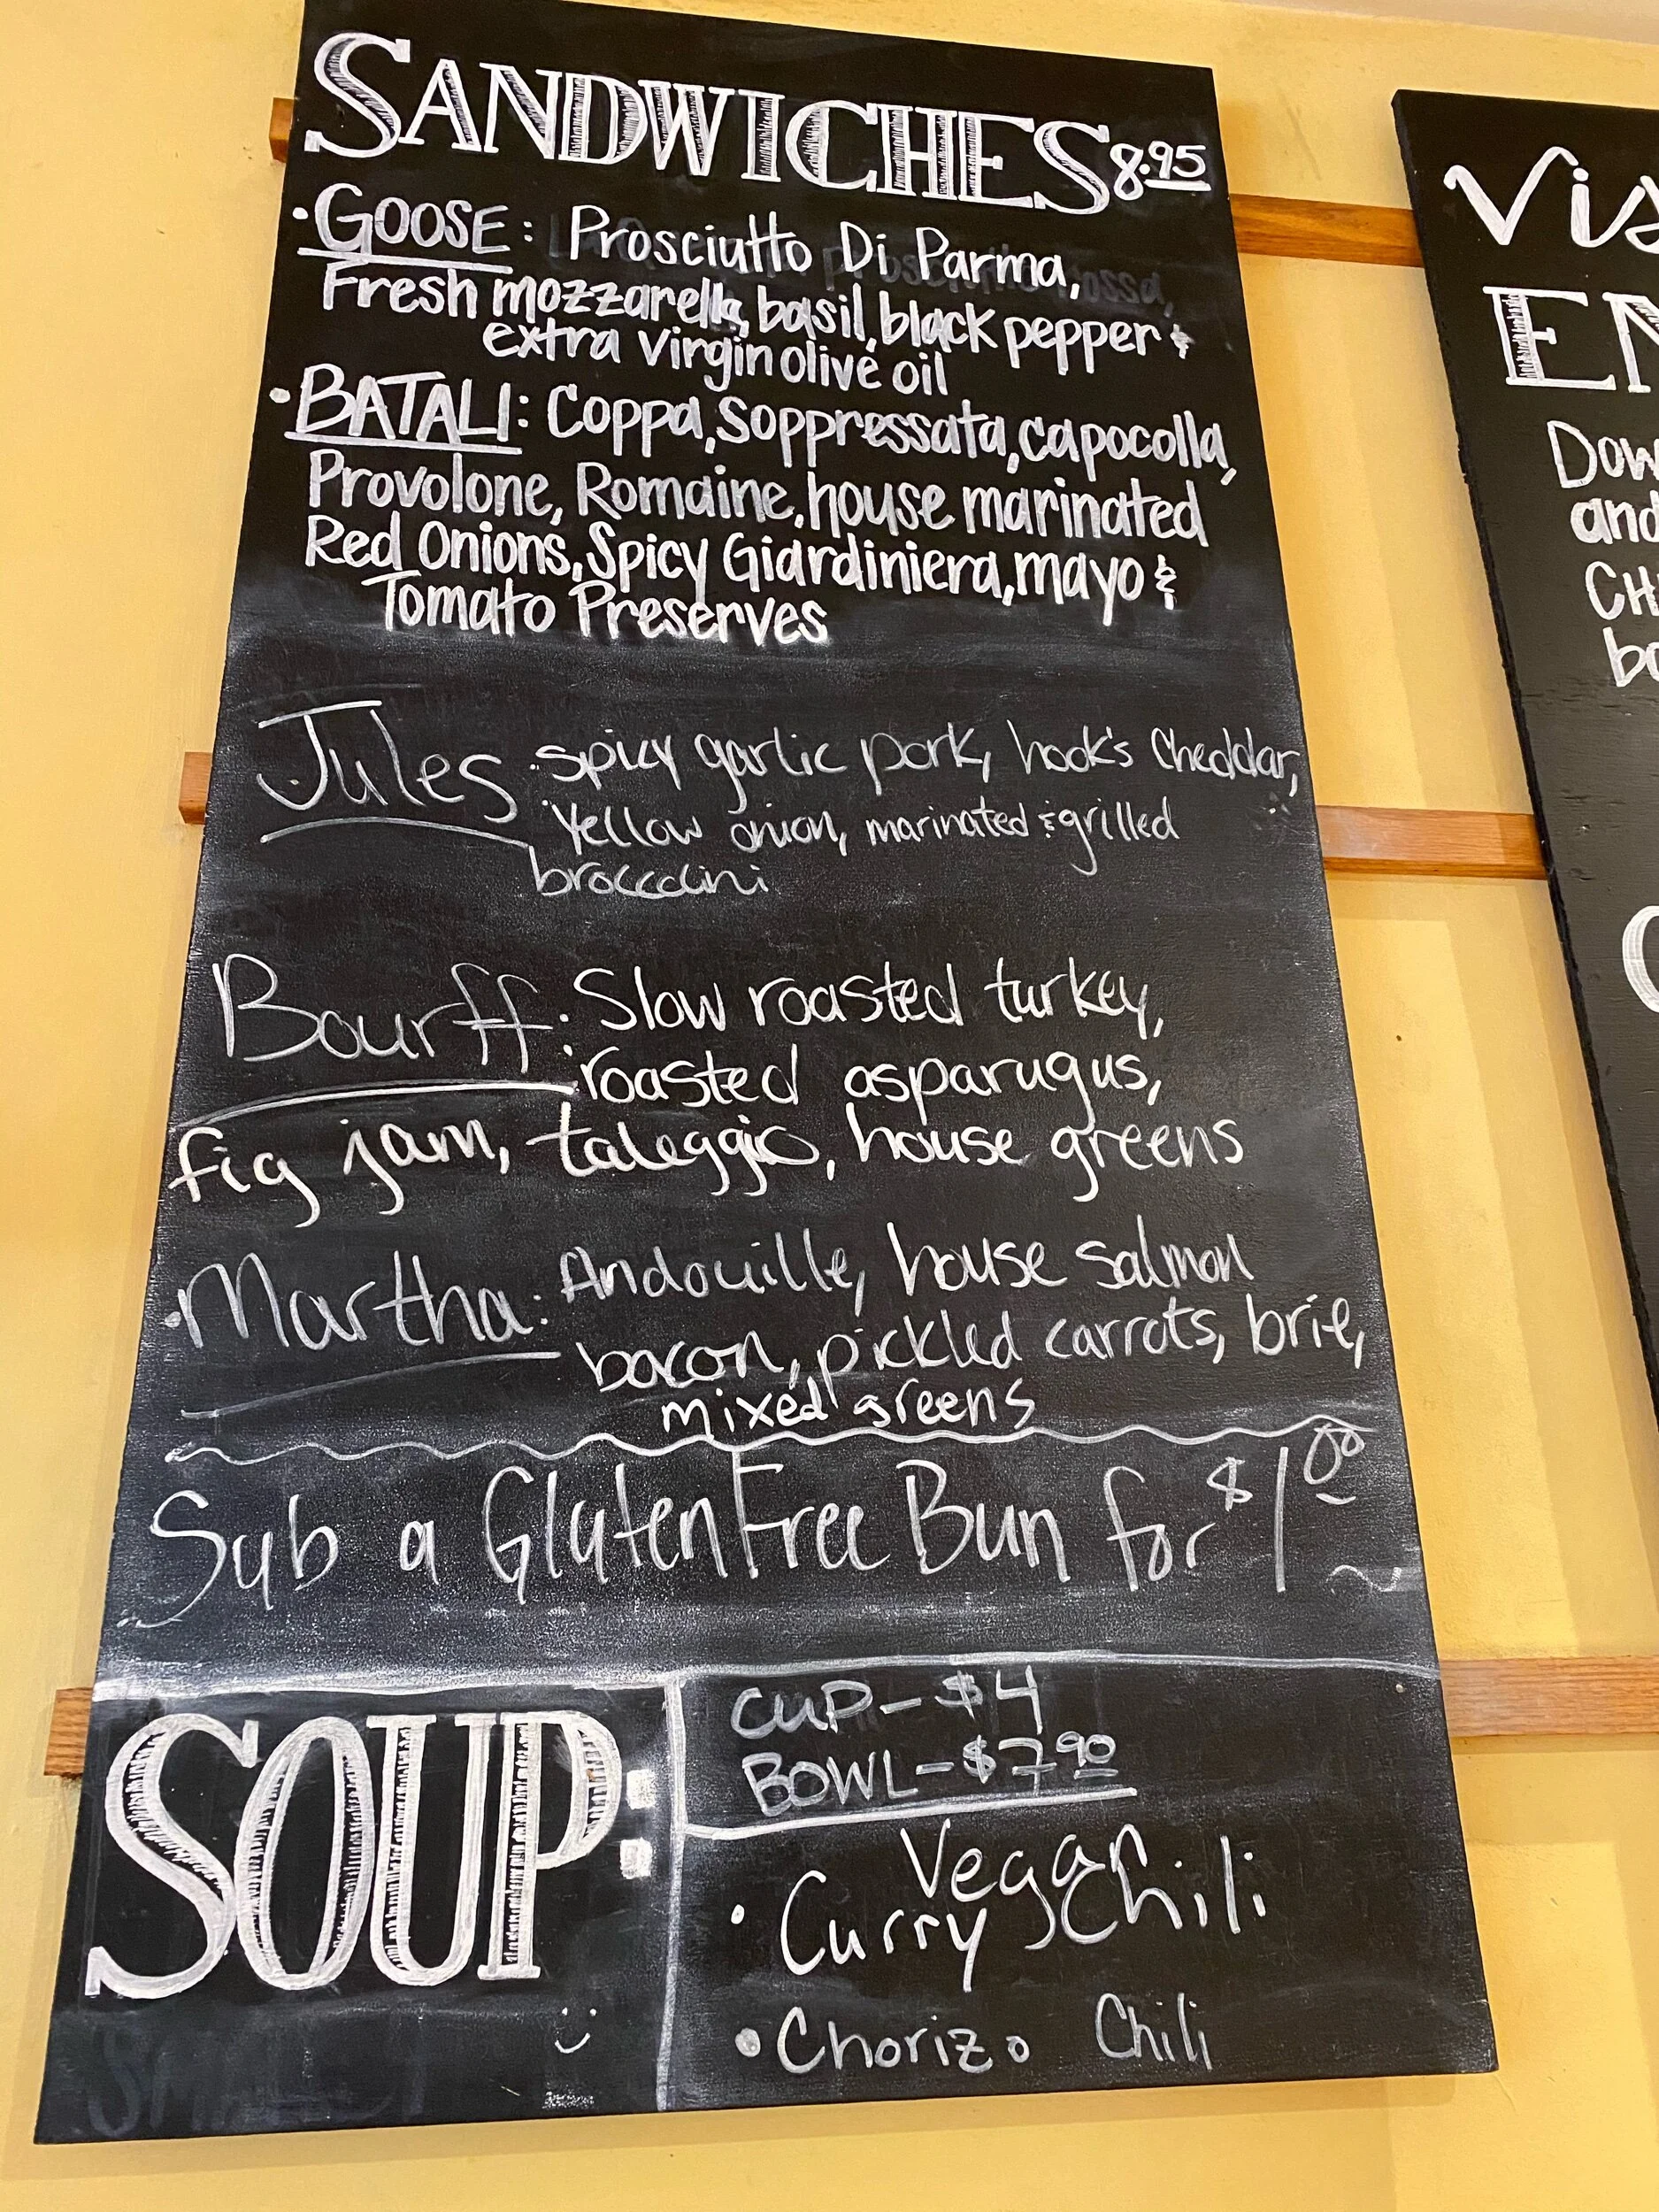 SANDWICHES 8.95
· GOOSE: Prosciutto Di Parma,
Fresh mozzarella, basil, black pepper &
extra virgin olive oil
· BATALI: Coppa, Soppressata, capocolla,
Provolone, Romaine, house marinated
Red Onions, Spicy Giardiniera, mayo &
Tomato Preserves
Jules: spicy garlic pork, hook's Cheddar,
Yellow onion, marinated & grilled
broccolini
Bourff: Slow roasted turkey,
roasted asparugus,
fig jam, taleggio, house greens
· Martha: Andouille, house salmon
bacon, pickled carrots, brie,
mixed greens
Sub a Gluten Free Bun for $1.00
SOUP:
CUP - $4
BOWL - $7.90
Vegan
· Curry Chili
· Chorizo Chili
Vis
EN
Dow
and
CH
bo